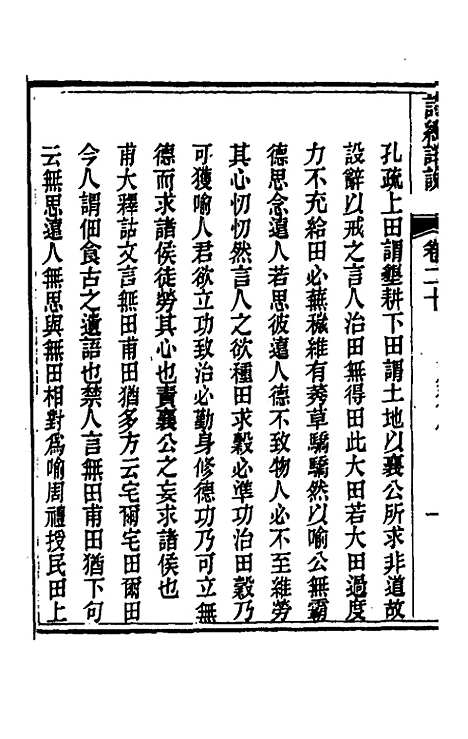 詩經詳說
卷二十
一
孔疏上田謂墾耕下田謂土地以襄公所求非道故
設辭以戒之言人治田無得田此大田若大田過度
力不充給田必蕪穢維有莠草驕驕然以喻公無霸
德思念遠人若思彼遠人德不致物人必不至維勞
其心忉忉然言人之欲種田求穀必準功治田穀乃
可獲喻人君欲立功致治必勤身修德功乃可立無
德而求諸侯徒勞其心也責襄公之妄求諸侯也
甫大釋詁文言無田甫田猶多方云宅爾宅田爾田
今人謂佃食古之遺語也禁人言無田甫田猶下句
云無思遠人無思與無田相對爲喻周禮授民田上